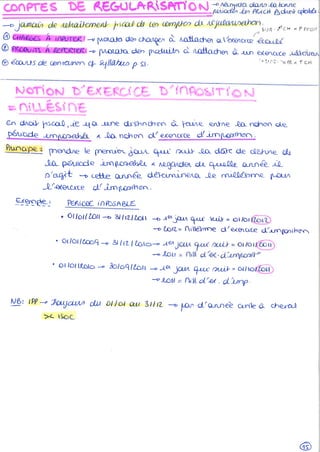 COMPTES DE REGULARISATION
→ jamais de retraitement fiscal de ces comptes de régularisation.
① CHARGES A IMPUTER → prorata des charges à rattacher à l'exercice écoulé
② PRODUITS A REPORTER → prorata des produits à rattacher à un exercice ultérieur
③ écarts de conversion cf. syllabus p 51.
NOTION D'EXERCICE D'IMPOSITION
= MILLÉSIME
En droit fiscal, il y a une distinction à faire entre la notion de
période imposable & la notion d'exercice d'imposition.
Principe : prendre le premier jour qui suit la date de clôture de
la période imposable & regarder de quelle année il
s'agit → cette année déterminera le millésime pour
l'exercice d'imposition.
Exemple : PERIODE IMPOSABLE
• 01/01/2011 → 31/12/2011 → 1er jour qui suit = 01/01/2012
→ 2012 = millésime d'exercice d'imposition
• 01/01/2009 → 31/12/2010 → 1er jour qui suit = 01/01/2011
→ 2011 = mill d'ex. d'impos°
• 01/01/2010 → 30/09/2011 → 1er jour qui suit = 01/10/2011
→ 2011 = mill d'ex. d'imp
NB : IPP → toujours du 01/01 au 31/12 → pas d'année civile à cheval
>< ISOC